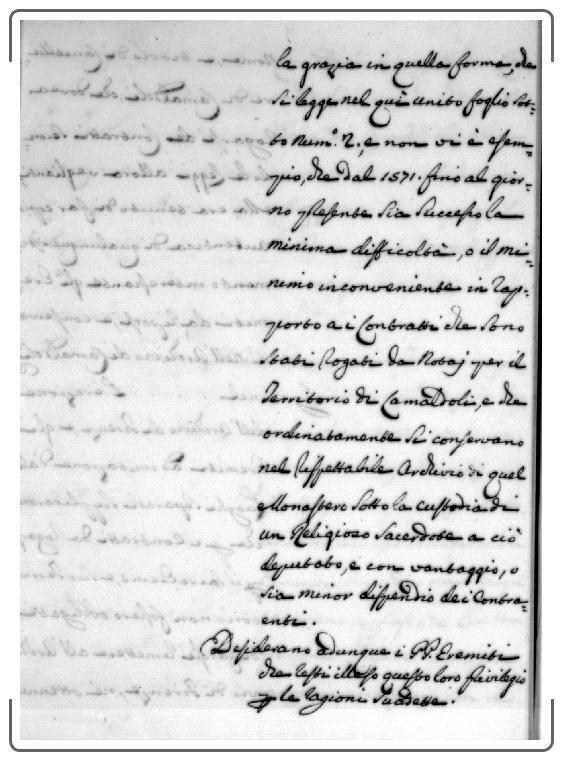 la grazia in quella forma, che
si legge nel quì unito foglio sot=
to Num.° 2., e non vi è esem=
pio, che dal 1571. fino al gior=
no presente sia successo la
minima difficoltà, o il mi=
nimo inconveniente in rap=
porto a i Contratti che sono
stati rogati da Notaj per il
Territorio di Camaldoli, e che
ordinatamente si conservano
nel rispettabile Archivio di quel
Monastero sotto la custodia di
un Religioso Sacerdote a ciò
deputato, e con vantaggio, o
sia minor dispendio dei Contra=
enti.
Desiderano adunque i PP. Eremiti
che resti illeso questo loro Privilegio
p le ragioni suddette.